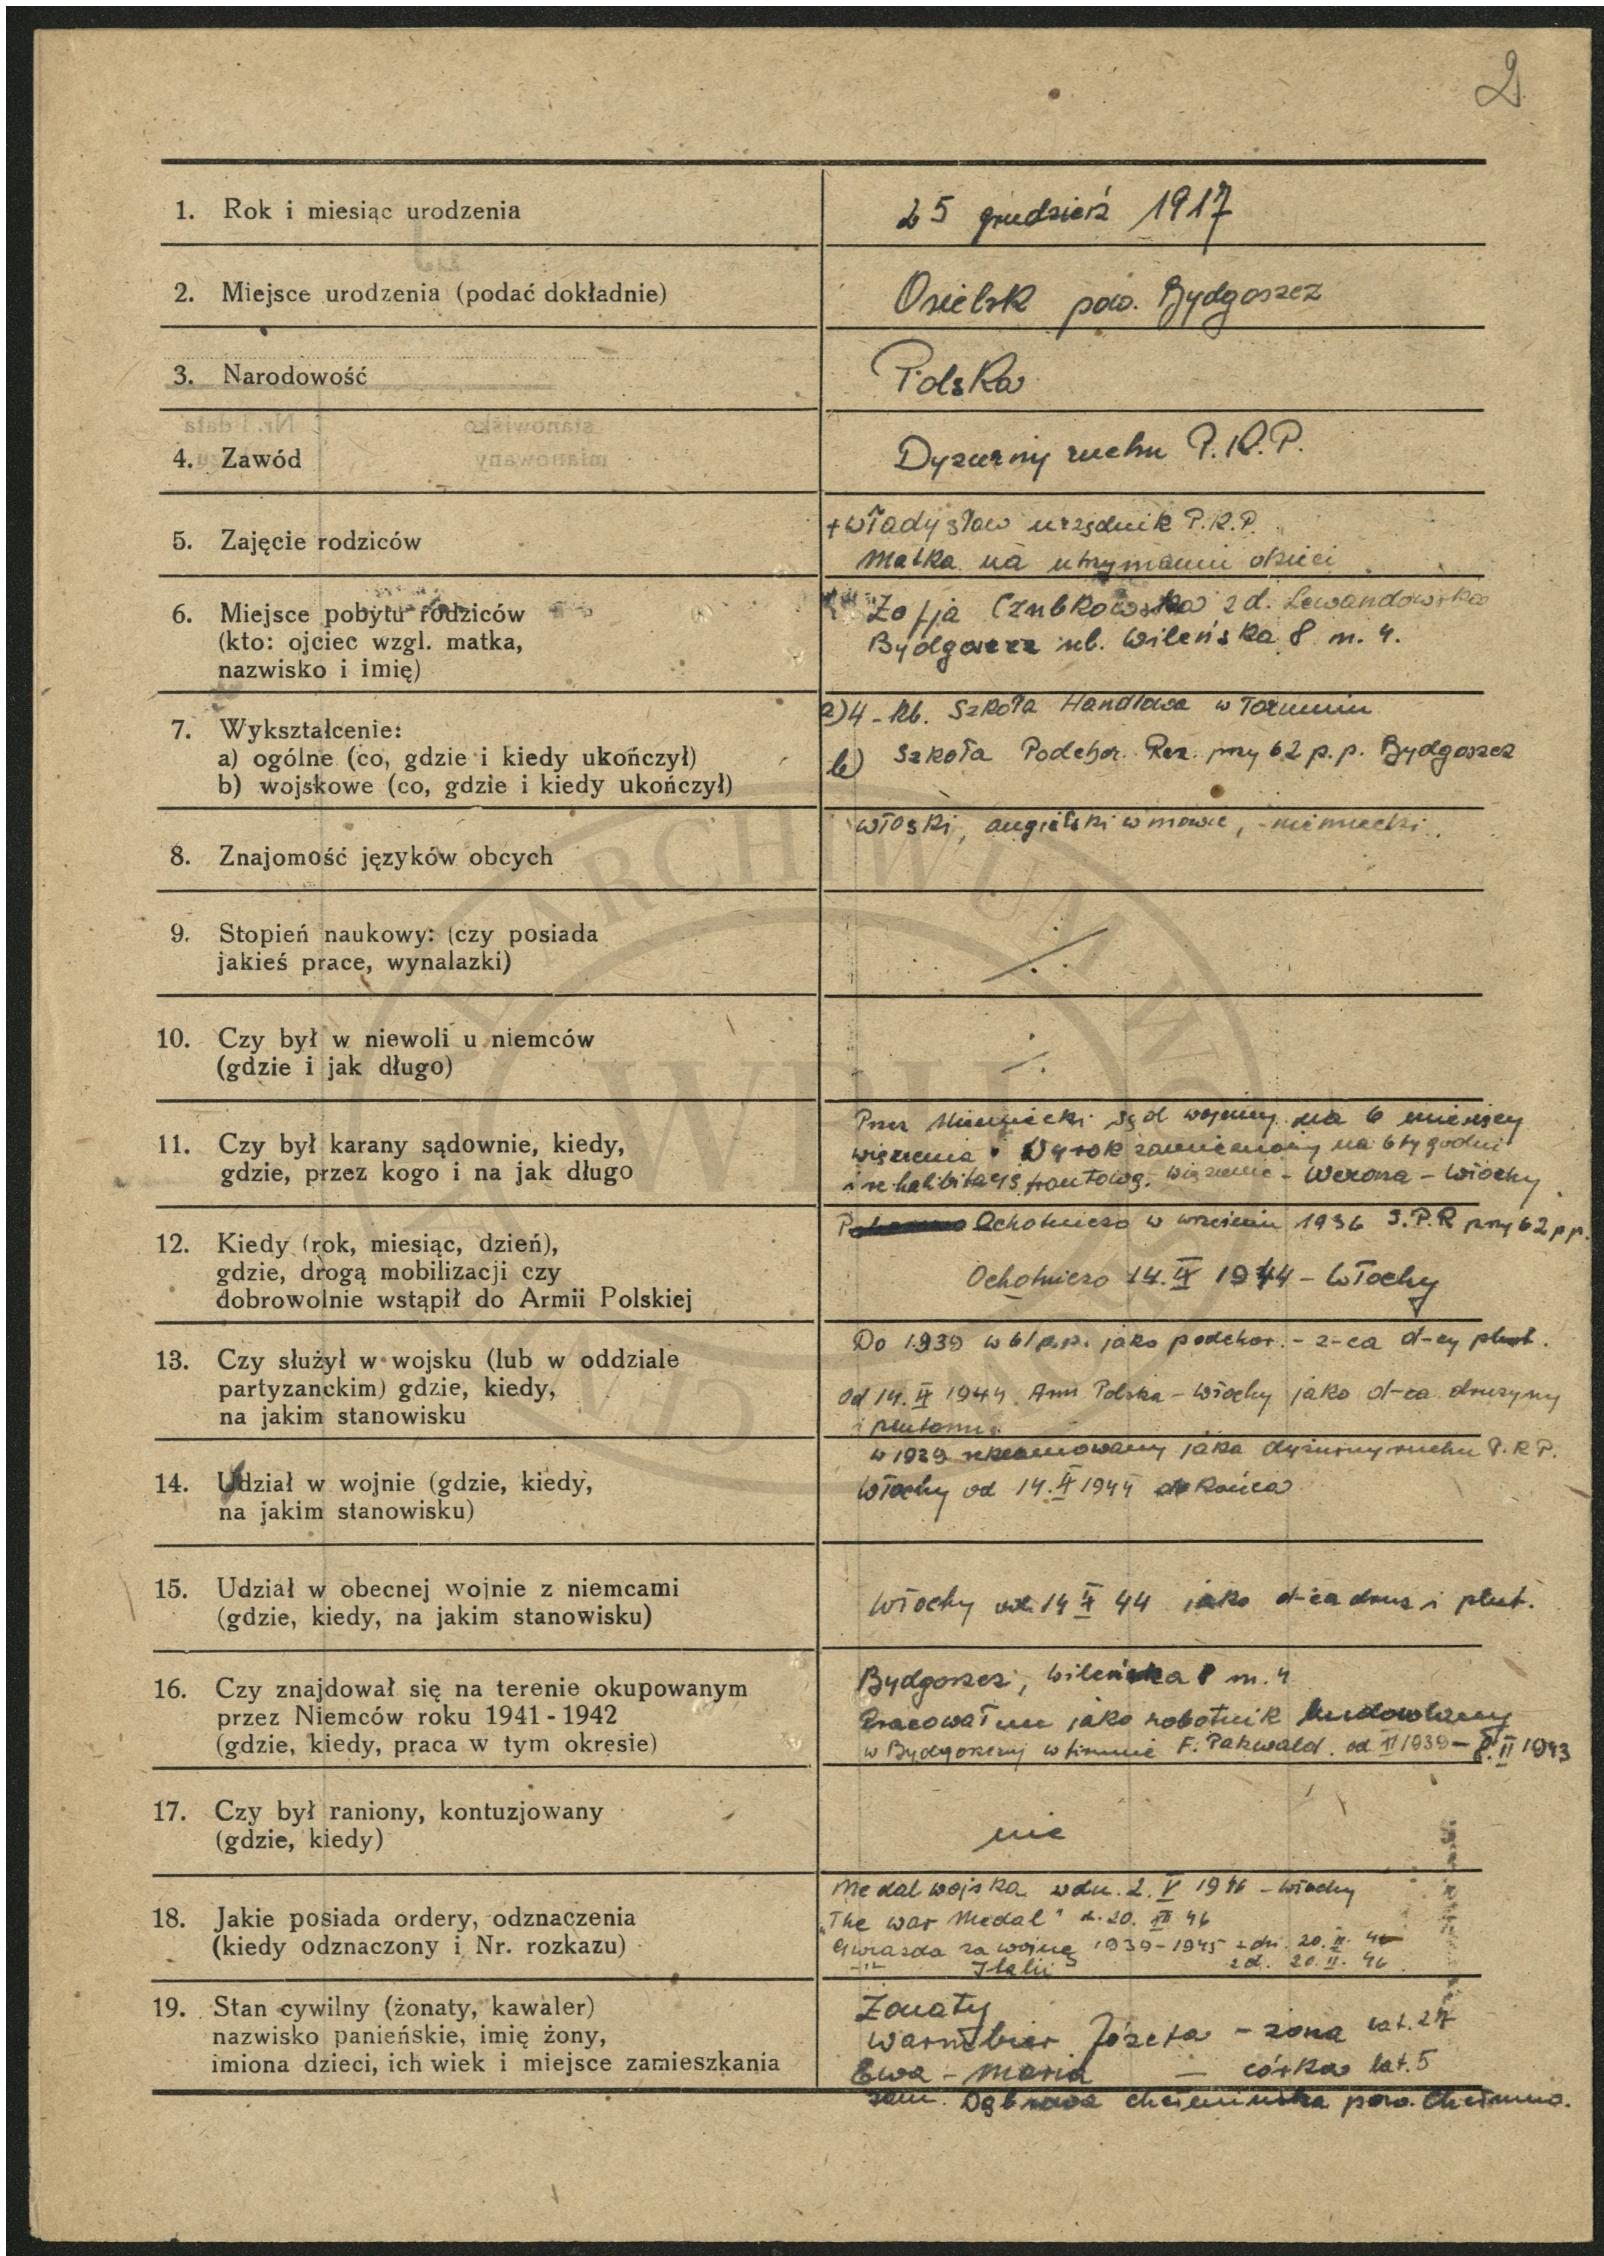 2
1. Rok i miesiąc urodzenia
25 grudzień 1917
2. Miejsce urodzenia (podać dokładnie)
Osielsk pow. Bydgoszcz
3. Narodowość
Polska
4. Zawód
Dyżurny ruchu P.K.P.
5. Zajęcie rodziców
+ Władysław urzędnik P.K.P.
Matka na utrzymaniu dzieci
6. Miejsce pobytu rodziców
(kto: ojciec wzgl. matka,
nazwisko i imię)
Zofja Czubkowska z d. Lewandowska
Bydgoszcz ul. Wileńska 8 m. 4.
7. Wykształcenie:
a) ogólne (co, gdzie i kiedy ukończył)
b) wojskowe (co, gdzie i kiedy ukończył)
a) 4-kl. Szkoła Handlowa w Toruniu
b) Szkoła Podchor. Rez. przy 62 p.p. Bydgoszcz
8. Znajomość języków obcych
włoski, angielski w mowie, niemiecki.
9. Stopień naukowy: (czy posiada
jakieś prace, wynalazki)
10. Czy był w niewoli u niemców
(gdzie i jak długo)
11. Czy był karany sądownie, kiedy,
gdzie, przez kogo i na jak długo
Przez Niemiecki sąd wojenny na 6 miesięcy
więzienia. Wyrok zamieniony na 6 tygodni
i rehabilitację frontową. Więzienie - Werona - Włochy.
12. Kiedy (rok, miesiąc, dzień),
gdzie, drogą mobilizacji czy
dobrowolnie wstąpił do Armii Polskiej
Ochotniczo w wrześniu 1936 S.P.R przy 62 p.p.
Ochotniczo 14. 1944 - Włochy
13. Czy służył w wojsku (lub w oddziale
partyzanckim) gdzie, kiedy,
na jakim stanowisku
Do 1939 w 61 p.p. jako podchor. - z-ca d-cy plut.
Od 14. 1944 Arm Polska - Włochy jako d-ca drużyny
i plutonu.
14. Udział w wojnie (gdzie, kiedy,
na jakim stanowisku)
w 1939 reklamowany jako dyżurny ruchu P.K.P.
Włochy od 14. 1944 do końca
15. Udział w obecnej wojnie z niemcami
(gdzie, kiedy, na jakim stanowisku)
Włochy od 14 44 jako d-ca druż i plut.
16. Czy znajdował się na terenie okupowanym
przez Niemców roku 1941 - 1942
(gdzie, kiedy, praca w tym okresie)
Bydgoszcz, Wileńska 8 m. 4
Pracowałem jako robotnik budowlany
w Bydgoszczy w firmie F. od 1939 - 8. II 1943
17. Czy był raniony, kontuzjowany
(gdzie, kiedy)
nie
18. Jakie posiada ordery, odznaczenia
(kiedy odznaczony i Nr. rozkazu)
Medal wojska w dn. 2. V 1946 - Włochy
"The war Medal" d. 20. 46
Gwiazda za wojnę 1939-1945 z dn. 20. II. 46
-"- Italii z d. 20. II. 46
19. Stan cywilny (żonaty, kawaler)
nazwisko panieńskie, imię żony,
imiona dzieci, ich wiek i miejsce zamieszkania
Żonaty
Warmbier Józefa - żona lat. 27
Ewa - Maria - córka lat. 5
zam. Dąbrowa Chełmińska pow. Chełmno.
ARCHIWUM